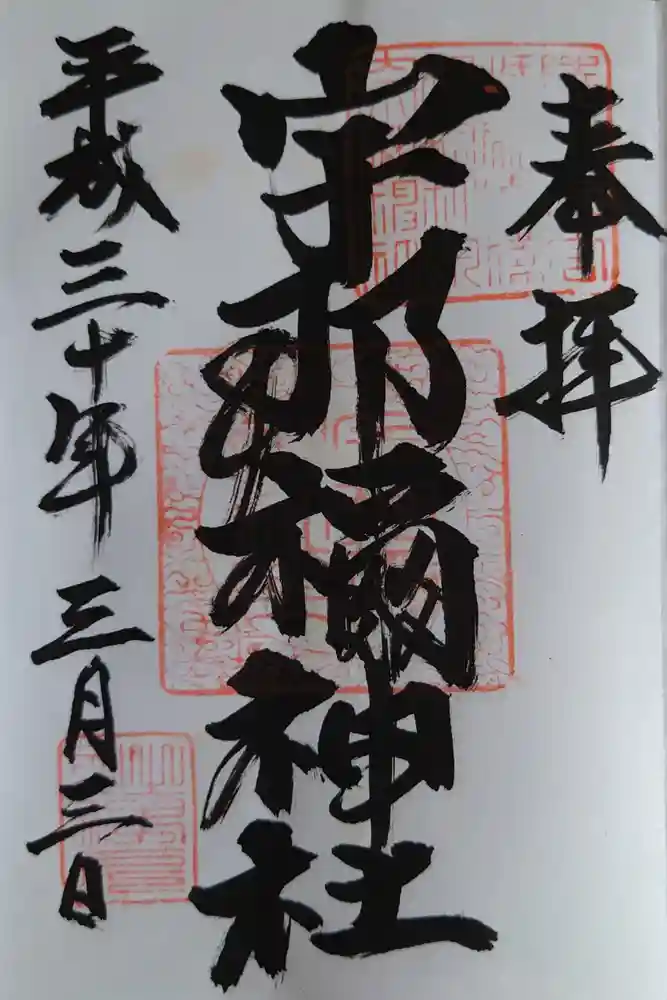 奉拝
宇那禰神社
平成三十年三月三日